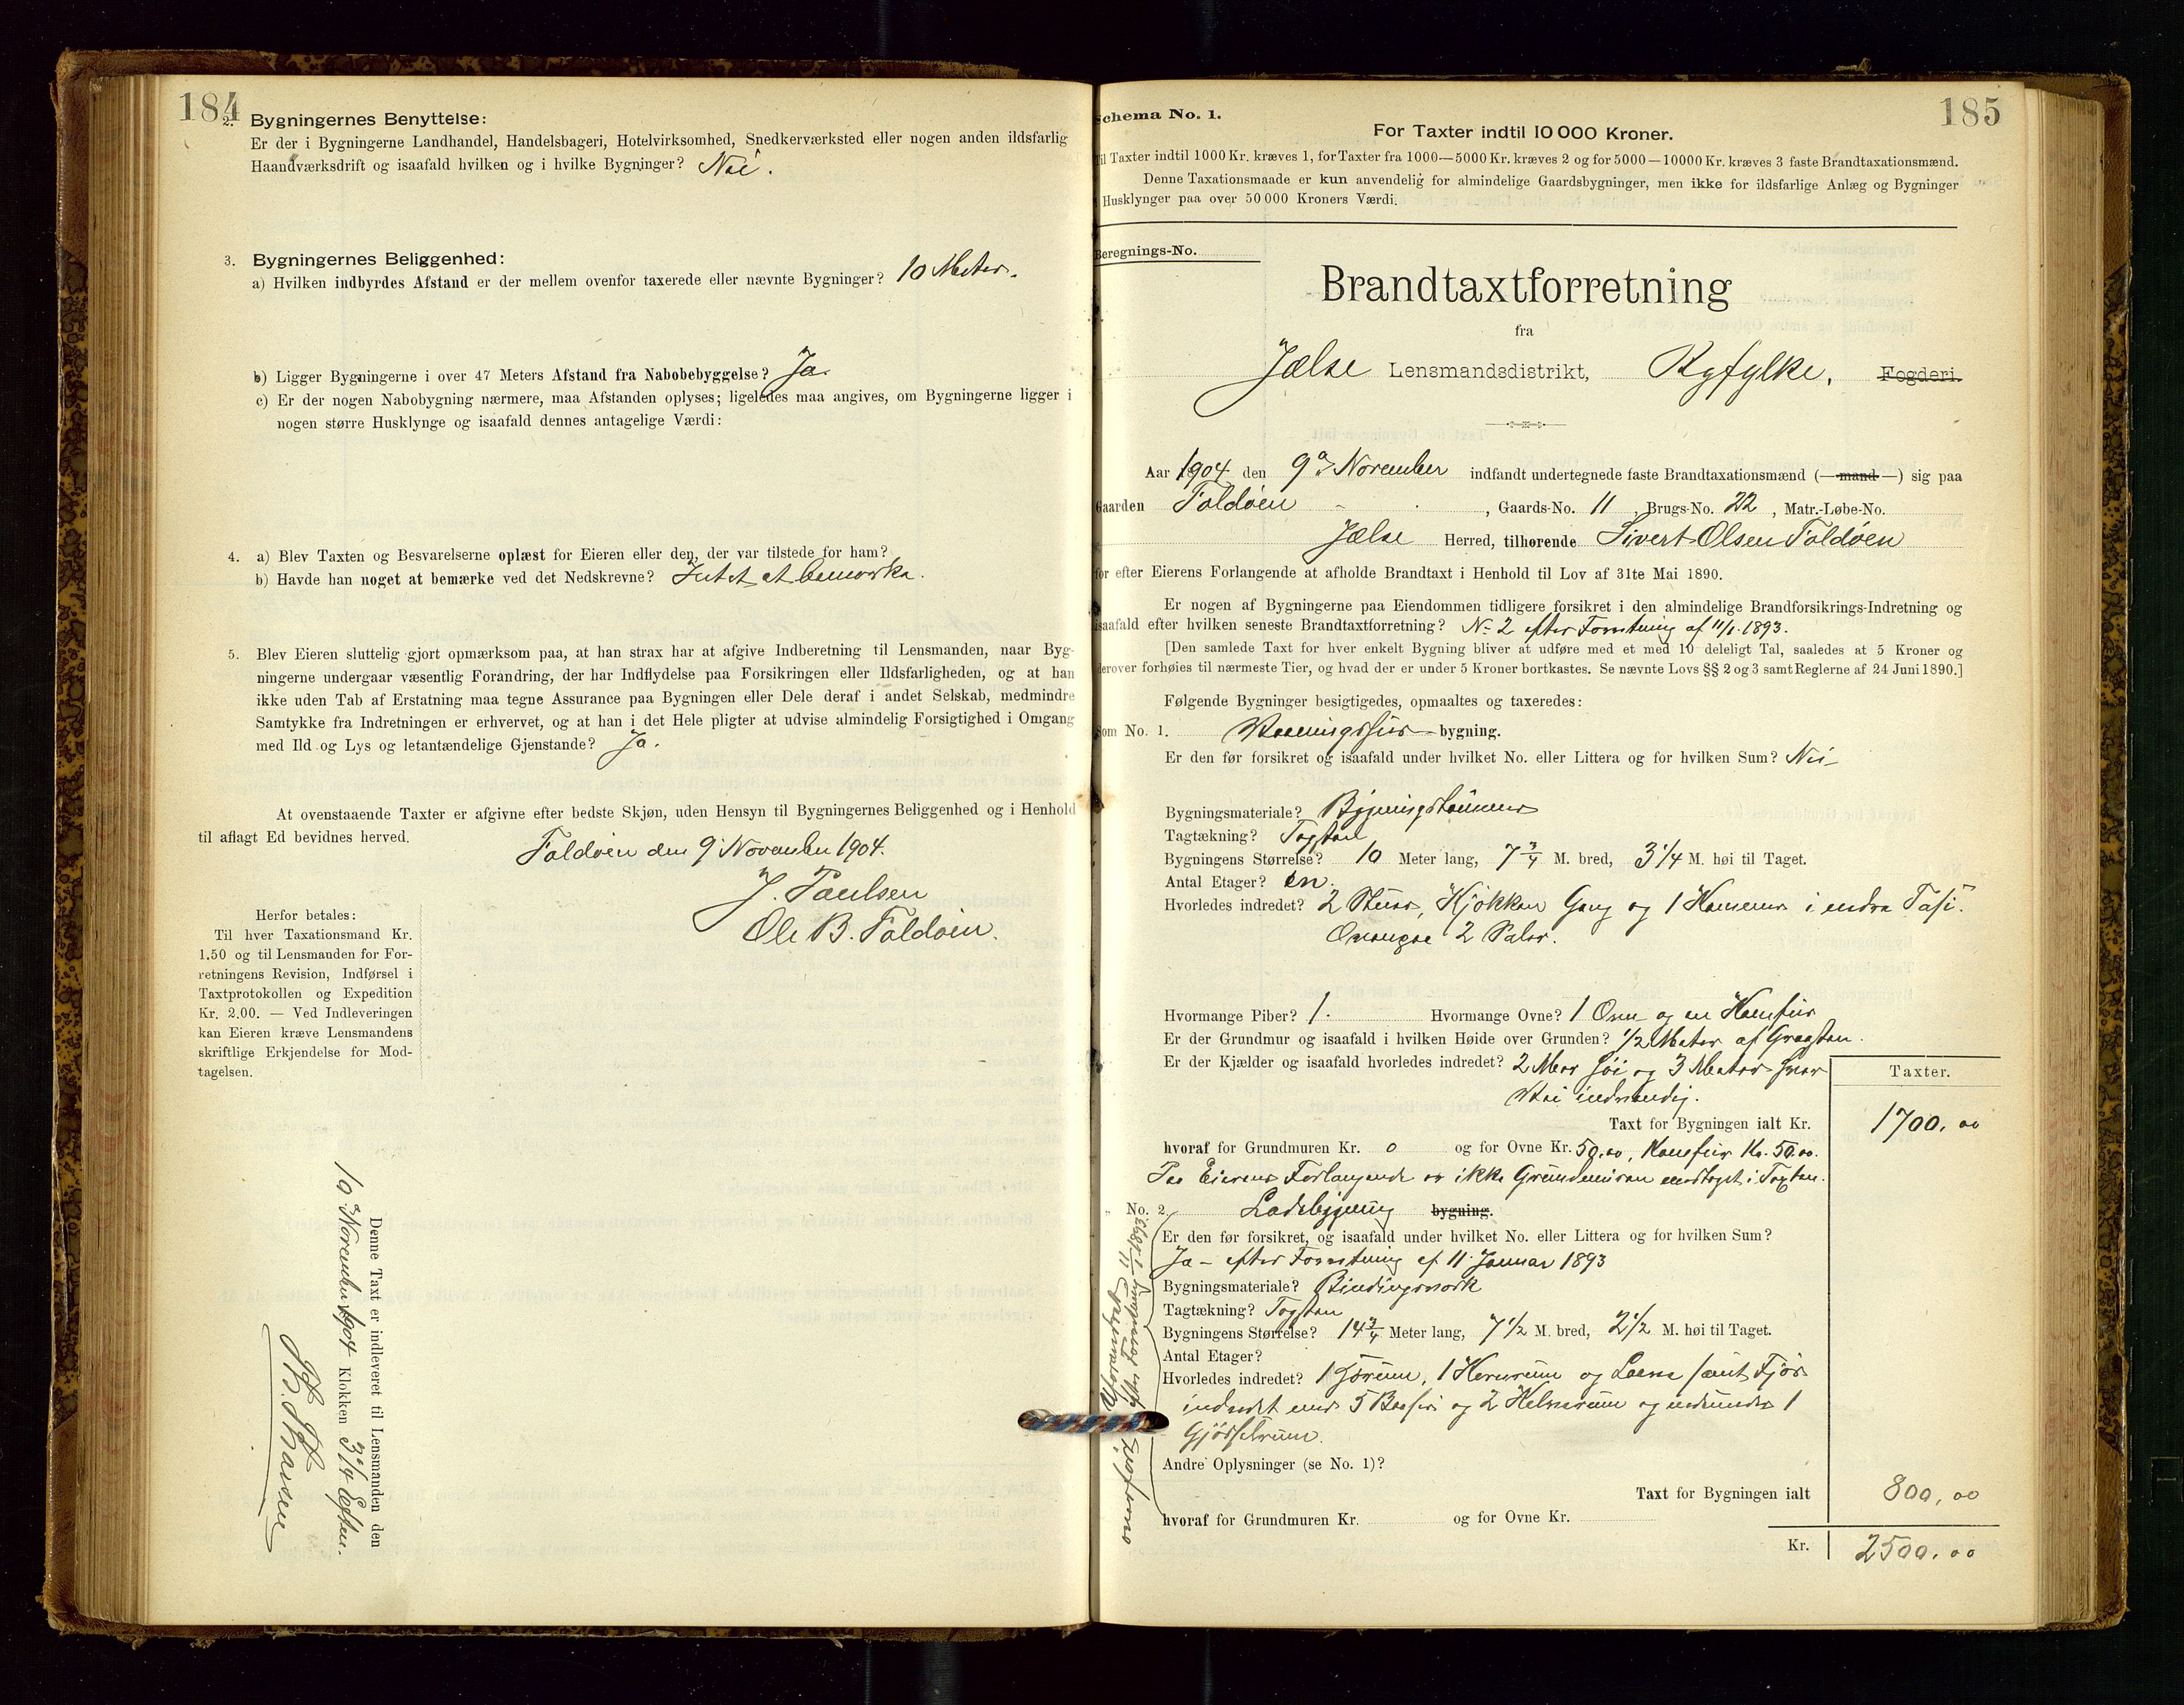 184
2. Bygningernes Benyttelse:
Er der i Bygningerne Landhandel, Handelsbageri, Hotelvirksomhed, Snedkerværksted eller nogen anden ildsfarlig
Haandværksdrift og isaafald hvilken og i hvilke Bygninger? Nei.
3. Bygningernes Beliggenhed:
a) Hvilken indbyrdes Afstand er der mellem ovenfor taxerede eller nævnte Bygninger? 10 Meter.
b) Ligger Bygningerne i over 47 Meters Afstand fra Nabobebyggelse? Ja.
c) Er der nogen Nabobygning nærmere, maa Afstanden oplyses; ligeledes maa angives, om Bygningerne ligger i
nogen større Husklynge og isaafald dennes antagelige Værdi:
4. a) Blev Taxten og Besvarelserne oplæst for Eieren eller den, der var tilstede for ham?
b) Havde han noget at bemærke ved det Nedskrevne? Intet at bemærke.
5. Blev Eieren sluttelig gjort opmærksom paa, at han strax har at afgive Indberetning til Lensmanden, naar Byg-
ningerne undergaar væsentlig Forandring, der har Indflydelse paa Forsikringen eller Ildsfarligheden, og at han
ikke uden Tab af Erstatning maa tegne Assurance paa Bygningen eller Dele deraf i andet Selskab, medmindre
Samtykke fra Indretningen er erhvervet, og at han i det Hele pligter at udvise almindelig Forsigtighed i Omgang
med Ild og Lys og letantændelige Gjenstande? Ja.
At ovenstaaende Taxter er afgivne efter bedste Skjøn, uden Hensyn til Bygningernes Beliggenhed og i Henhold
til aflagt Ed bevidnes herved.
Foldøen den 9 November 1904.
J. Paulsen
Ole B. Foldøen.
Herfor betales:
Til hver Taxationsmand Kr.
1.50 og til Lensmanden for For-
retningens Revision, Indførsel i
Taxtprotokollen og Expedition
Kr. 2.00. — Ved Indleveringen
kan Eieren kræve Lensmandens
skriftlige Erkjendelse for Mod-
tagelsen.
Denne Taxt er indleveret til Lensmanden den
10 November 1904 Klokken 3 1/4 Efterm.
185
Schema No. 1.
For Taxter indtil 10 000 Kroner.
Til Taxter indtil 1000 Kr. kræves 1, for Taxter fra 1000—5000 Kr. kræves 2 og for 5000—10000 Kr. kræves 3 faste Brandtaxationsmænd.
Denne Taxationsmaade er kun anvendelig for almindelige Gaardsbygninger, men ikke for ildsfarlige Anlæg og Bygninger
Husklynger paa over 50 000 Kroners Værdi.
Beregnings-No.
Brandtaxtforretning
fra
Jælse Lensmandsdistrikt, Ryfylke, Fogderi.
Aar 1904 den 9de November indfandt undertegnede faste Brandtaxationsmænd (—mand—) sig paa
Gaarden Foldøen, Gaards-No. 11, Brugs-No. 22, Matr.-Løbe-No.
Jælse Herred, tilhørende Sivert Olsen Foldøen
for efter Eierens Forlangende at afholde Brandtaxt i Henhold til Lov af 31te Mai 1890.
Er nogen af Bygningerne paa Eiendommen tidligere forsikret i den almindelige Brandforsikrings-Indretning og
isaafald efter hvilken seneste Brandtaxtforretning? No 2 efter Forretning af 11/1 1893.
[Den samlede Taxt for hver enkelt Bygning bliver at udføre med et med 10 deleligt Tal, saaledes at 5 Kroner og
derover forhøies til nærmeste Tier, og hvad der er under 5 Kroner bortkastes. Se nævnte Lovs §§ 2 og 3 samt Reglerne af 24 Juni 1890.]
Følgende Bygninger besigtigedes, opmaaltes og taxeredes:
Som No. 1. Vaaningshus bygning.
Er den før forsikret og isaafald under hvilket No. eller Littera og for hvilken Sum? Nei
Bygningsmateriale? Bygningstømmer
Tagtækning? Tagsten
Bygningens Størrelse? 10 Meter lang, 7 3/4 M. bred, 3 1/4 M. høi til Taget.
Antal Etager? en.
Hvorledes indredet? 2 Stuer, Kjøkken Gang og 1 Kammer i
2 Saler.
Hvormange Piber? 1. Hvormange Ovne? 1 Ovn og en Komfur
Er der Grundmur og isaafald i hvilken Høide over Grunden? 1/2 Meter af Graasten.
Er der Kjælder og isaafald hvorledes indredet? 2 Meter høi og 3 Meter hver
Vei indvendig.
Taxter.
Taxt for Bygningen ialt Kr. 1700,00
hvoraf for Grundmuren Kr. 0 og for Ovne Kr. 50,00, Komfur Kr. 50.00.
Paa Eierens Forlangende er ikke Grundmuren medtaget i Taxten.
" No. 2. Ladebygning bygning.
Er den før forsikret, og isaafald under hvilket No. eller Littera og for hvilken Sum?
Ja - efter Forretning af 11 Januar 1893
Bygningsmateriale? Bindingsverk
Tagtækning? Tagsten
Bygningens Størrelse? 14 3/4 Meter lang, 7 1/2 M. bred, 2 1/2 M. høi til Taget.
Antal Etager?
Hvorledes indredet? 1 Hørum, 1 Kornrum og Laave samt Fjøs
indredet med 5 Baase og 2 og nedunder 1
Gjødselrum.
Andre Oplysninger (se No. 1)?
Taxt for Bygningen ialt 800,00
hvoraf for Grundmuren Kr. og for Ovne Kr.
Kr. 2500,00